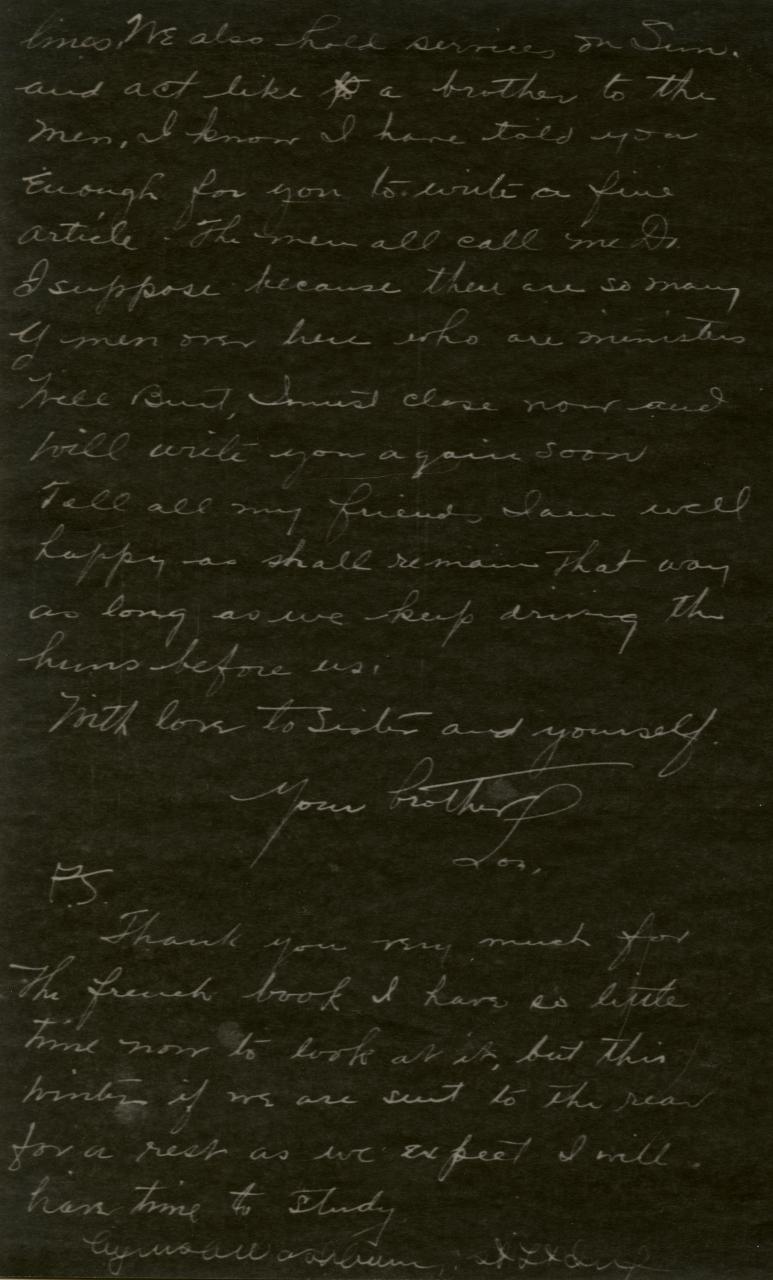 lines. We also hold services on Sun.
and act like a brother to the
men. I know I have told you
enough for you to write a fine
article. The men all call me Dr.
I suppose because there are so many
Y men over here who are ministers
Well Burt, I must close now and
will write you again soon
Tell all my friends I am well
happy as shall remain that way
as long as we keep driving the
huns before us.
With love to Sister and yourself.
Your brother
Don.
P.S.
Thank you very much for
the french book I have so little
time now to look at it, but this
winter if we are sent to the rear
for a rest as we expect I will
have time to study